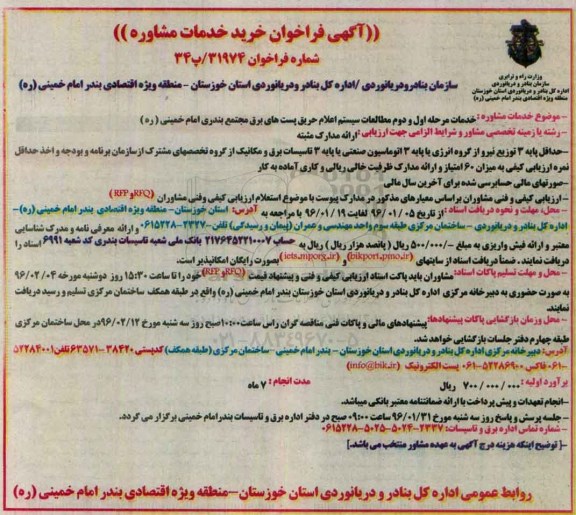 ((آگهی فراخوان خرید خدمات مشاوره))
شماره فراخوان ۳۱۹۷۴/پ۳۴
وزارت راه و ترابری
سازمان بنادر و دریانوردی
اداره کل بنادر و دریانوردی استان خوزستان
منطقه ویژه اقتصادی بندر امام خمینی (ره)
سازمان بنادرودریانوردی /اداره کل بنادر ودریانوردی استان خوزستان - منطقه ویژه اقتصادی بندر امام خمینی (ره)
-موضوع خدمات مشاوره : خدمات مرحله اول و دوم مطالعات سیستم اعلام حریق پست های برق مجتمع بندری امام خمینی ( ره )
-رشته یا زمینه تخصصی مشاور و شرایط الزامی جهت ارزیابی : ارائه مدارک مثبته
-حداقل پایه ۳ توزیع نیرو از گروه انرژی یا پایه ۳ اتوماسیون صنعتی یا پایه ۳ تاسیسات برق و مکانیک از گروه تخصصهای مشترک از سازمان برنامه و بودجه و اخذ حداقل
نمره ارزیابی کیفی به میزان ۶۰ امتیاز و ارائه مدارک ظرفیت خالی ریالی و کاری آماده به کار
-صورتهای مالی حسابرسی شده برای آخرین سال مالی
-ارزیابی کیفی و فنی مشاوران براساس معیارهای مذکور در مدارک پیوست با موضوع استعلام ارزیابی کیفی وفنی مشاوران (RFQو RFP)
-محل، مهلت و نحوه دریافت اسناد : از تاریخ ۹۶/۰۱/۰۵ لغایت ۹۶/۰۱/۱۹ با مراجعه به آدرس: استان خوزستان- منطقه ویژه اقتصادی بندر امام خمینی (ره)-
اداره کل بنادر و دریانوردی - ساختمان مرکزی طبقه سوم واحد مهندسی و عمران (پیمان و رسیدگی) تلفن ۲۳۲۷-۰۶۱۵۲۲۸ و ارائه معرفی نامه و مدرک شناسایی
معتبر و ارائه فیش واریزی به مبلغ -/۵۰۰/۰۰۰ ریال ( پانصد هزار ریال ) ریال به حساب ۲۱۷۶۴۵۲۲۱۰۰۰۷ بانک ملی شعبه تاسیسات بندری کد شعبه ۶۹۹۱ اسناد را
دریافت نمایند . ضمناً دریافت اسناد از سایتهای (bikport.pmo.ir) و (iets.mporg.ir) بصورت رایگان امکانپذیر است.
-محل و مهلت تسلیم پاکات اسناد: مشاوران باید پاکت اسناد ارزیابی کیفی و فنی و پیشنهاد قیمت (RFQو RFP) خود را تا ساعت ۱۵:۳۰ روز دوشنبه مورخه ۹۶/۰۲/۰۴
به صورت حضوری به دبیرخانه مرکزی اداره کل بنادر و دریانوردی استان خوزستان بندر امام خمینی (ره) واقع در طبقه همکف ساختمان مرکزی تسلیم و رسید دریافت
نمایند.
-محل وزمان بازگشایی پاکات پیشنهادها: پیشنهادهای مالی و پاکات فنی مناقصه گران راس ساعت ۱۰:۰۰ صبح روز سه شنبه مورخ ۹۶/۰۲/۱۲ در محل ساختمان مرکزی
طبقه چهارم دفتر جلسات بازگشایی خواهد شد.
آدرس: دبیرخانه مرکزی اداره کل بنادر و دریانوردی استان خوزستان - بندر امام خمینی - ساختمان مرکزی (طبقه همکف) کدپستی ۳۸۴۲۰-۶۳۵۷۱ تلفن ۵۲۲۸۴۰۰۱
-۰۶۱ فاکس ۵۲۲۸۶۹۰۰-۰۶۱ پست الکترونیک (info@bik.ir)
بر آورد اولیه : ۷۰۰/۰۰۰/۰۰۰ ریال مدت انجام : ۷ ماه
-انجام تعهدات و پیش پرداخت با ارائه ضمانتنامه معتبر بانکی میباشد.
- جلسه پرسش و پاسخ روز سه شنبه مورخ ۹۶/۰۱/۳۱ ساعت ۰۹:۰۰ صبح در دفتر اداره برق و تاسیسات بندرامام خمینی برگزار می گردد.
- شماره تماس اداره برق و تاسیسات : ۲۳۳۷-۵۰۲۴-۵۰۲۵-۰۶۱۵۲۲۸
-[ توضیح اینکه هزینه درج آگهی به عهده مشاور منتخب می باشد.]
روابط عمومی اداره کل بنادر و دریانوردی استان خوزستان-منطقه ویژه اقتصادی بندر امام خمینی (ره)